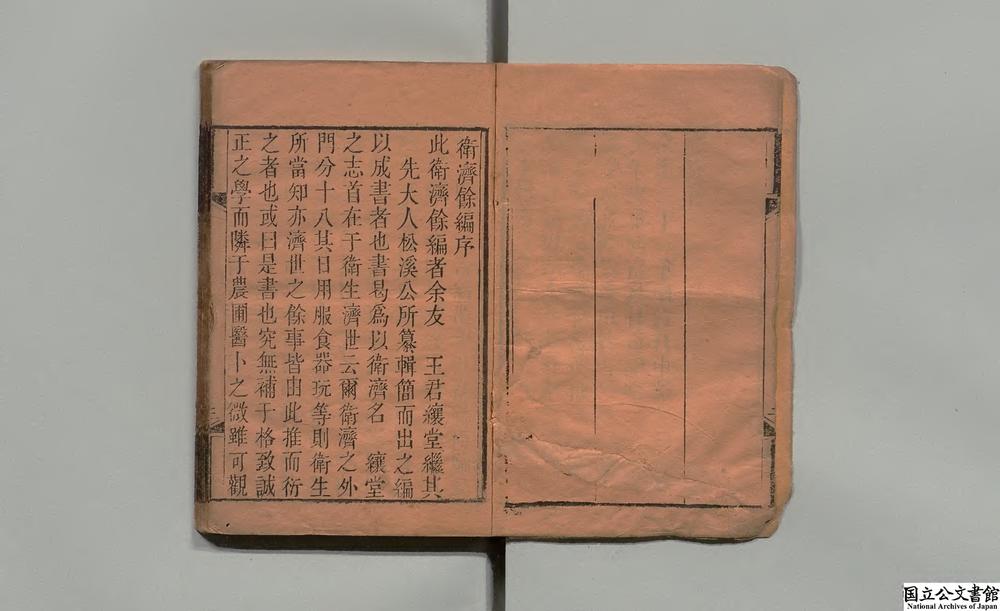 衛濟餘編序
此衛濟餘編者余友 王君纕堂繼其
先大人松溪公所纂輯簡而出之編
以成書者也書曷爲以衛濟名 纕堂
之志首在于衛生濟世云爾衛濟之外
門分十八其日用服食器玩等則衛生
所當知亦濟世之餘事皆由此推而衍
之者也或曰是書也究無補于格致誠
正之學而隣于農圃醫卜之微雖可觀
国立公文書館
National Archives of Japan